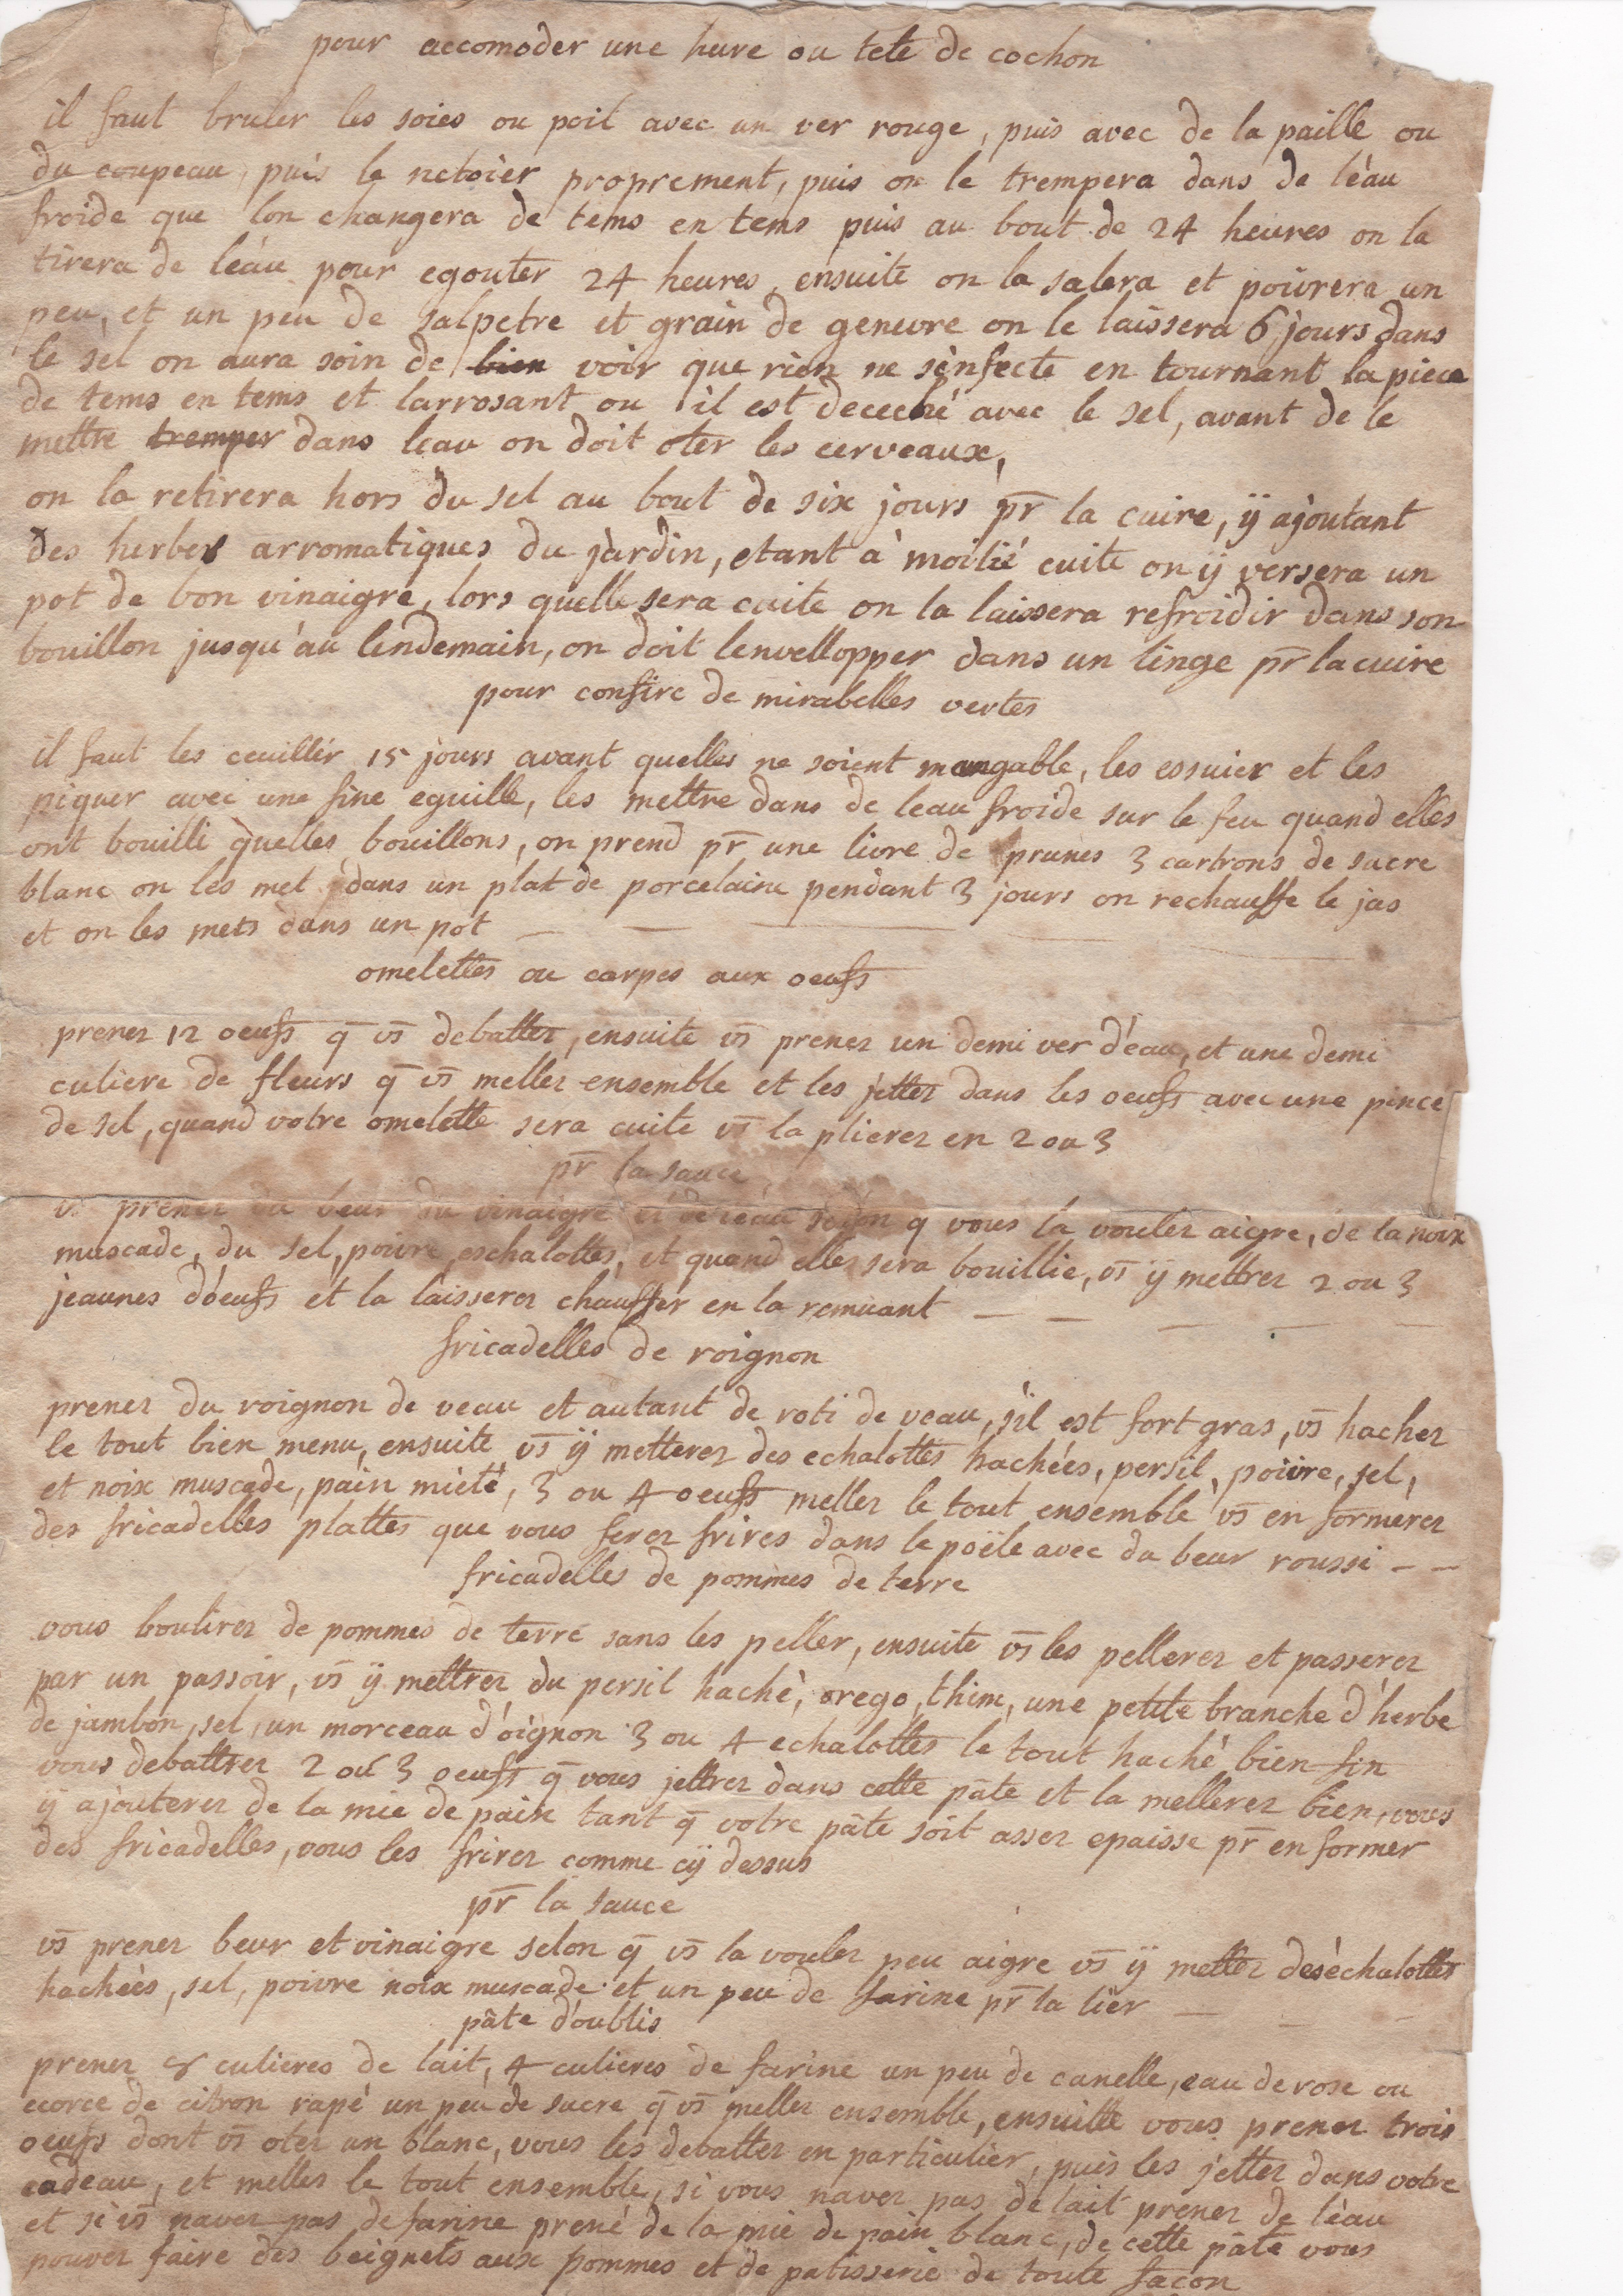 pour accomoder une hure ou tete de cochon
il faut bruler les soies ou poil avec un ver rouge, puis avec de la paille ou
du coupeau, puis le netoier proprement, puis on le trempera dans de léau
froide que lon changera de tems en tems puis au bout de 24 heures on la
tirera de léau pour egouter 24 heures, ensuite on la salera et poivrera un
peu, et un peu de salpetre et grain de genevre on le laissera 6 jours dans
le sel on aura soin de bien voir que rien ne sènfecte en tournant la piece
de tems en tems et larrosant ou il est deceché avec le sel, avant de le
mettre tremper dans leau on doit oter les cerveaux,
on la retirera hors du sel au bout de six jours pr la cuire, ÿ ajoutant
des herbes arromatiques du jardin, etant à moitié cuite on ÿ versera un
pot de bon vinaigre, lors quelle sera cuite on la laissera refroidir dans son
bouillon jusqu'au lendemain, on doit lenvellopper dans un linge pr la cuire
pour confire de mirabelles vertes
il faut les ceuillir 15 jours avant quelles ne soient mangable, les essuier et les
piquer avec une fine eguille, les mettre dans de leau froide sur le feu quand elles
ont bouilli quelles bouillons, on prend pr une livre de prunes 3 cartrons de sucre
blanc on les met dans un plat de porcelaine pendant 3 jours on rechauffe le jas
et on les mets dans un pot
omelettes ou carpes aux oeufs
prenez 12 oeufs q̄ vs̄ debattez, ensuite vs̄ prenez un demi ver d'éau, et une demi
culiere de fleurs q̄ vs̄ mellez ensemble et les jettez dans les oeufs avec une pince
de sel, quand votre omelette sera cuite vs̄ la plierez en 2 ou 3
pr la sauce
vs prenez du beur du vinaigre et de léau selon q vous la voulez aigre, de la noix
muscade, du sel, poivre eschalottes, et quand elles sera bouillie, vs̄ ÿ mettrez 2 ou 3
jeaunes d'oeufs et la laisserez chauffer en la remuant
fricadelles de roignon
prenez du roignon de veau et autant de roti de veau, s'il est fort gras, vs̄ hachez
le tout bien menu, ensuite vs̄ ÿ metterez des echalottes hachées, persil, poivre, sel,
et noix muscade, pain mieté, 3 ou 4 oeufs mellez le tout ensemble vs̄ en formerez
des fricadelles plattes que vous ferez frires dans le poële avec du beur roussi - -
fricadelles de pommes de terre
vous boulirez de pommes de terre sans les peller, ensuite vs̄ les pellerez et passerez
par un passoir, vs̄ ÿ mettrez du persil haché, orego, thim, une petite branche d'herbe
de jambon, sel, un morceau d'oignon 3 ou 4 echalottes le tout haché bien fin
vous debattrez 2 ou 3 oeufs q̄ vous jettrez dans cette pâte et la mellerez bien, vous
ÿ ajouterez de la mie de pain tant q̄ votre pâte soit assez epaisse pr en former
des fricadelles, vous les frirez comme cÿ dessus
pr la sauce
vs̄ prenez beur et vinaigre selon q̄ vs̄ la voulez peu aigre vs̄ ÿ mettez des échalottes
hachées, sel, poivre noix muscade et un peu de farine pr la lier
pâte d'oublis
prenez 8 culieres de lait, 4 culieres de farine un peu de canelle, eau de rose ou
ecorce de citron rapé un peu de sucre q̄ vs̄ mellez ensemble, ensuitte vous prenez trois
oeufs dont vs̄ otez un blanc, vous les debattez en particulier, puis les jettez dans votre
cadeau, et mellez le tout ensemble, si vous navez pas de lait prenez de léau
et si vs̄ navez pas de farine prené de la mie de pain blanc, de cette pâte vous
pouvez faire des beignets aux pommes et de patisserie de toute façon